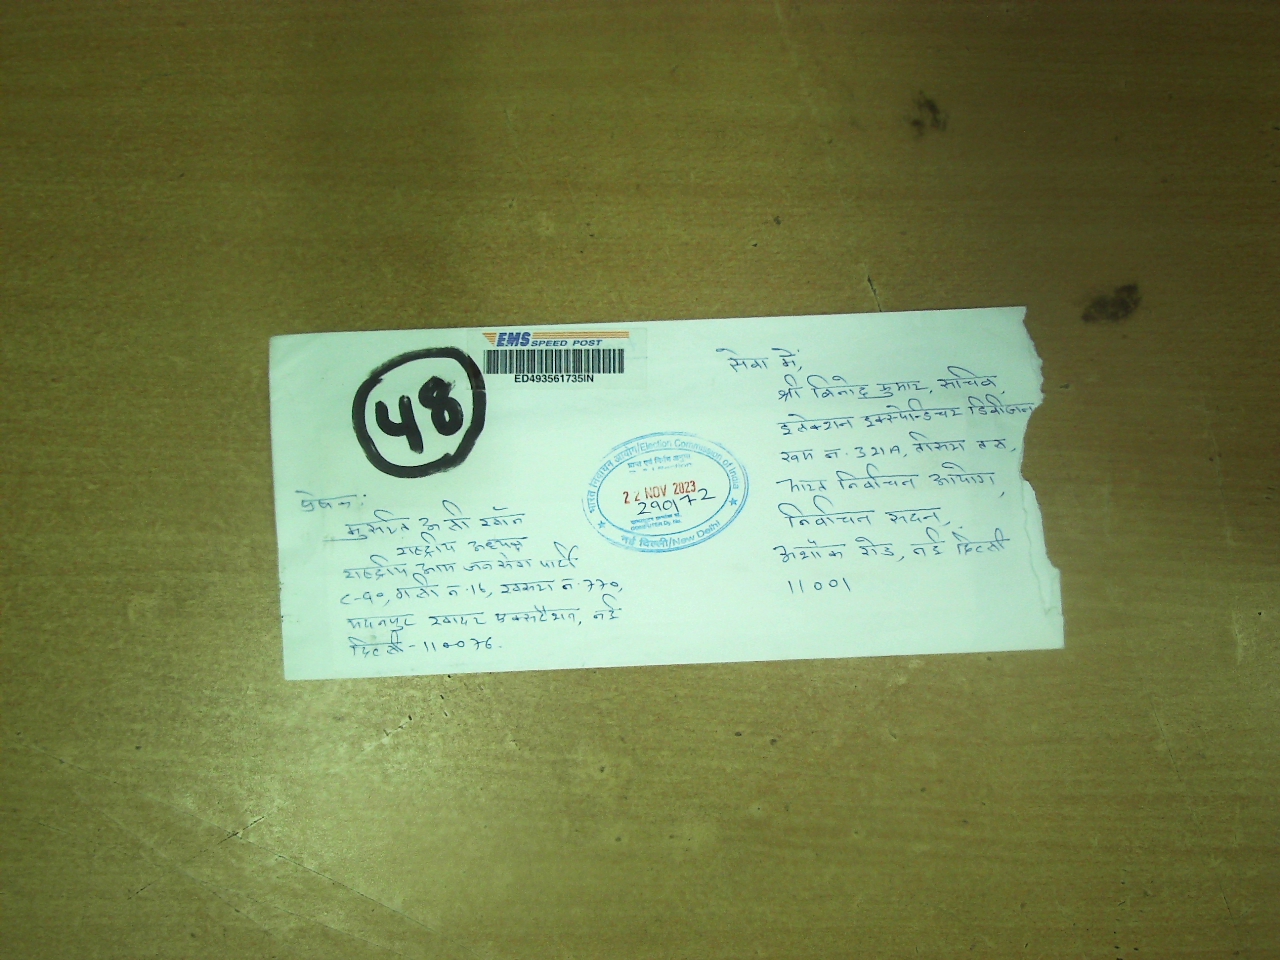 EMS SPEED POST
ED493561735IN
48
सेवा में,
श्री विनोद कुमार, सचिव,
इलेक्शन इक्स्पेन्डिचर डिवीजन
रूम न. 321A, तीसरा तल,
भारत निर्वाचन आयोग,
निर्वाचन सदन,
अशोक रोड, नई दिल्ली
11001
भारत निर्वाचन आयोग/Election Commission of India
22 NOV 2023
290172
नई दिल्ली/New Delhi
प्रेषक:
अली खॉन
राष्ट्रीय अध्यक्ष
राष्ट्रीय आम जन सेवा पार्टी
C-90, गली न. 16, खसरा न. 770,
मदनपुर खादर एक्सटेंशन, नई
दिल्ली - 110076.